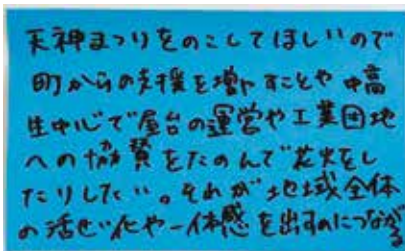 天神まつりをのこしてほしいので
町からの支援を増やすことや中高
生中心で屋台の運営や工業団地
への協賛をたのんで花火をし
たりしたい。それが地域全体
の活せい化や一体感を出すのにつながる